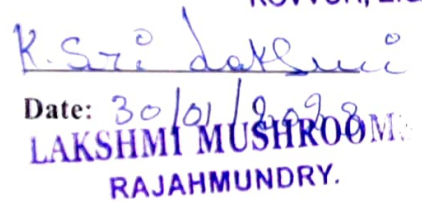 K. Sri Lakshmi
Date: 30/01/
LAKSHMI MUSHROOM
RAJAHMUNDRY.